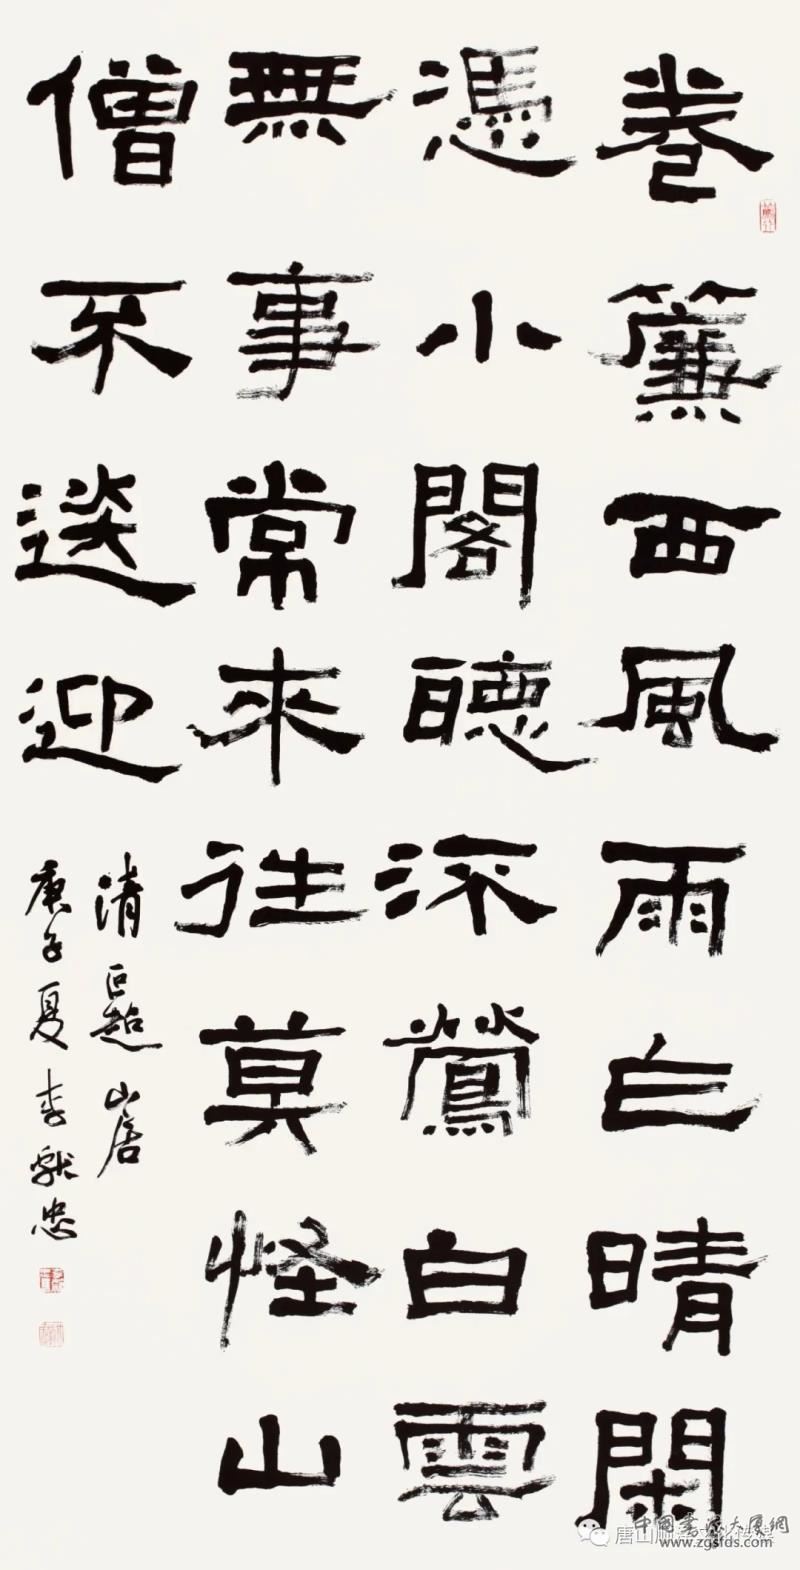 卷簾西風雨乍晴閑
憑小閣聽流鶯白雲
無事常來往莫怪山
僧不送迎
清 巨超 山居
庚子夏 李献忠
中國書法大厦網
www.zgsfds.com
唐山